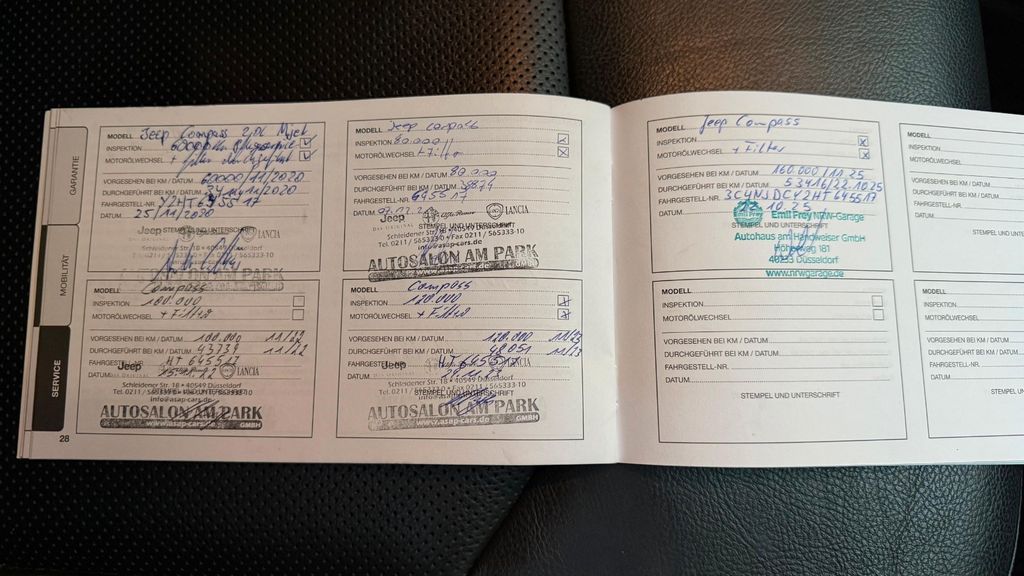 GARANTIE
MOBILITÄT
SERVICE
28
MODELL Jeep Compass 2,0L
INSPEKTION
MOTORÖLWECHSEL +
VORGESEHEN BEI KM / DATUM 60000/11/2020
DURCHGEFÜHRT BEI KM / DATUM 11/2020
FAHRGESTELL-NR. Y2HT645517
DATUM 25/11/2020
Jeep STEMPEL UND UNTERSCHRIFT LANCIA
Schleidener Str. 18 • 40549 Düsseldorf
AUTOSALON AM PARK
MODELL Jeep compass
INSPEKTION 80.000
MOTORÖLWECHSEL + Filter
VORGESEHEN BEI KM / DATUM 80.000
DURCHGEFÜHRT BEI KM / DATUM
FAHRGESTELL-NR. 645517
DATUM
Jeep Alfa Romeo LANCIA
STEMPEL UND UNTERSCHRIFT
Schleidener Str. 18 • 40549 Düsseldorf
Tel. 0211 / 565333-0 • Fax 0211 / 565333-10
AUTOSALON AM PARK
www.asap-cars.de GMBH
MODELL Compass
INSPEKTION 100.000
MOTORÖLWECHSEL + Filter
VORGESEHEN BEI KM / DATUM 100.000 11/22
DURCHGEFÜHRT BEI KM / DATUM 43739 11/22
FAHRGESTELL-NR. HT645517
DATUM
Jeep LANCIA
Schleidener Str. 18 • 40549 Düsseldorf
Tel. 0211 / 565333-0 • Fax 0211 / 565333-10
info@asap-cars.de
AUTOSALON AM PARK
www.asap-cars.de GMBH
MODELL Compass
INSPEKTION 120.000
MOTORÖLWECHSEL + Filter
VORGESEHEN BEI KM / DATUM 120.000 11/23
DURCHGEFÜHRT BEI KM / DATUM 48051 11/23
FAHRGESTELL-NR. HT645517
DATUM
Jeep LANCIA
Schleidener Str. 18 • 40549 Düsseldorf
Tel. 0211 / 565333-0 • Fax 0211 / 565333-10
STEMPEL UND UNTERSCHRIFT
AUTOSALON AM PARK
www.asap-cars.de GMBH
MODELL Jeep Compass
INSPEKTION
MOTORÖLWECHSEL + Filter
VORGESEHEN BEI KM / DATUM 160.000/11 25
DURCHGEFÜHRT BEI KM / DATUM 53416/22.1025
FAHRGESTELL-NR. 3C4NJDCY2HT645517
DATUM 10.25
Emil Frey NRW-Garage
STEMPEL UND UNTERSCHRIFT
Autohaus am Handweiser GmbH
181
40233 Düsseldorf
www.nrwgarage.de
MODELL
INSPEKTION
MOTORÖLWECHSEL
VORGESEHEN BEI KM / DATUM
DURCHGEFÜHRT BEI KM / DATUM
FAHRGESTELL-NR.
DATUM
STEMPEL UND UNTERSCHRIFT
MODELL
INSPEKTION
MOTORÖLWECHSEL
VORGESEHEN BEI KM / DATUM
DURCHGEFÜHRT BEI KM / DATUM
FAHRGESTELL-NR.
DATUM
STEMPEL UND
MODELL
INSPEKTION
MOTORÖLWECHSEL
VORGESEHEN BEI KM / DATUM
DURCHGEFÜHRT BEI KM / DATUM
FAHRGESTELL-NR.
DATUM
STEMPEL UND